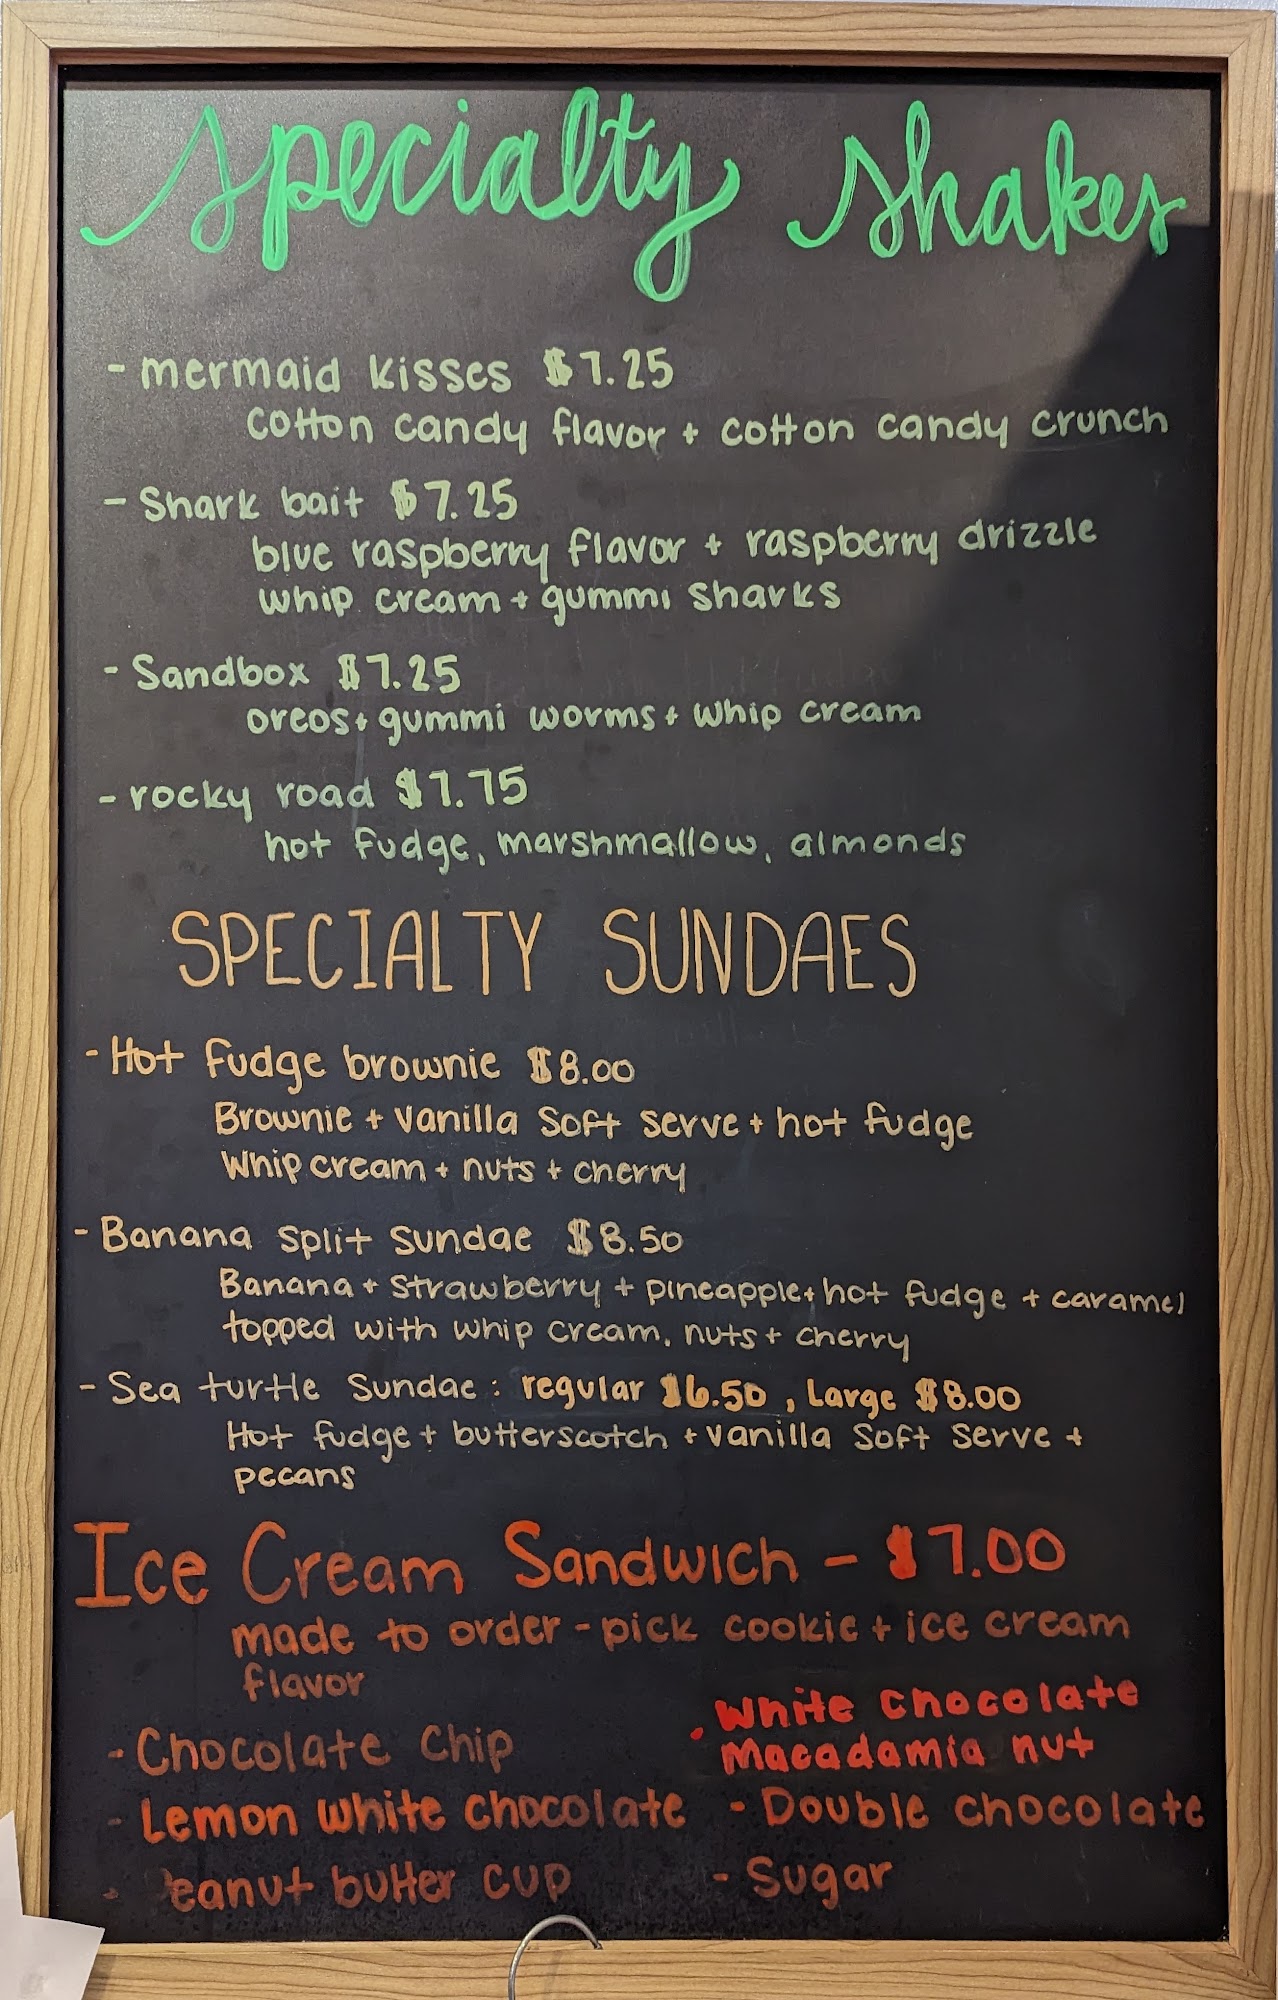 Specialty Shakes
- mermaid kisses $7.25
cotton candy flavor + cotton candy crunch
- Shark bait $7.25
blue raspberry flavor + raspberry drizzle
whip cream + gummi sharks
- Sandbox $7.25
oreos + gummi worms + whip cream
- rocky road $7.75
hot fudge, marshmallow, almonds
SPECIALTY SUNDAES
- Hot fudge brownie $8.00
Brownie + vanilla soft serve + hot fudge
Whip cream + nuts + cherry
- Banana split sundae $8.50
Banana + strawberry + pineapple + hot fudge + caramel
topped with whip cream, nuts + cherry
- Sea turtle Sundae: regular $6.50, Large $8.00
Hot fudge + butterscotch + vanilla soft serve +
pecans
Ice Cream Sandwich - $7.00
made to order - pick cookie + ice cream
flavor
- Chocolate chip
- Lemon white chocolate
- Peanut butter cup
• White chocolate
Macadamia nut
- Double chocolate
- Sugar